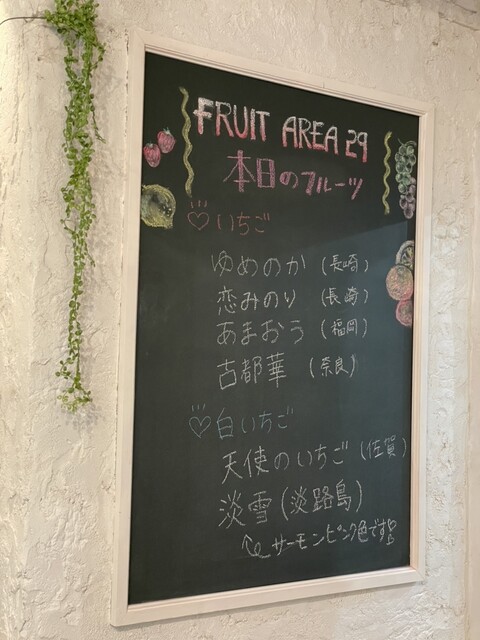 FRUIT AREA 29
本日のフルーツ
♡いちご
ゆめのか (長崎)
恋みのり (長崎)
あまおう (福岡)
古都華 (奈良)
♡白いちご
天使のいちご (佐賀)
淡雪 (淡路島)
サーモンピンク色です